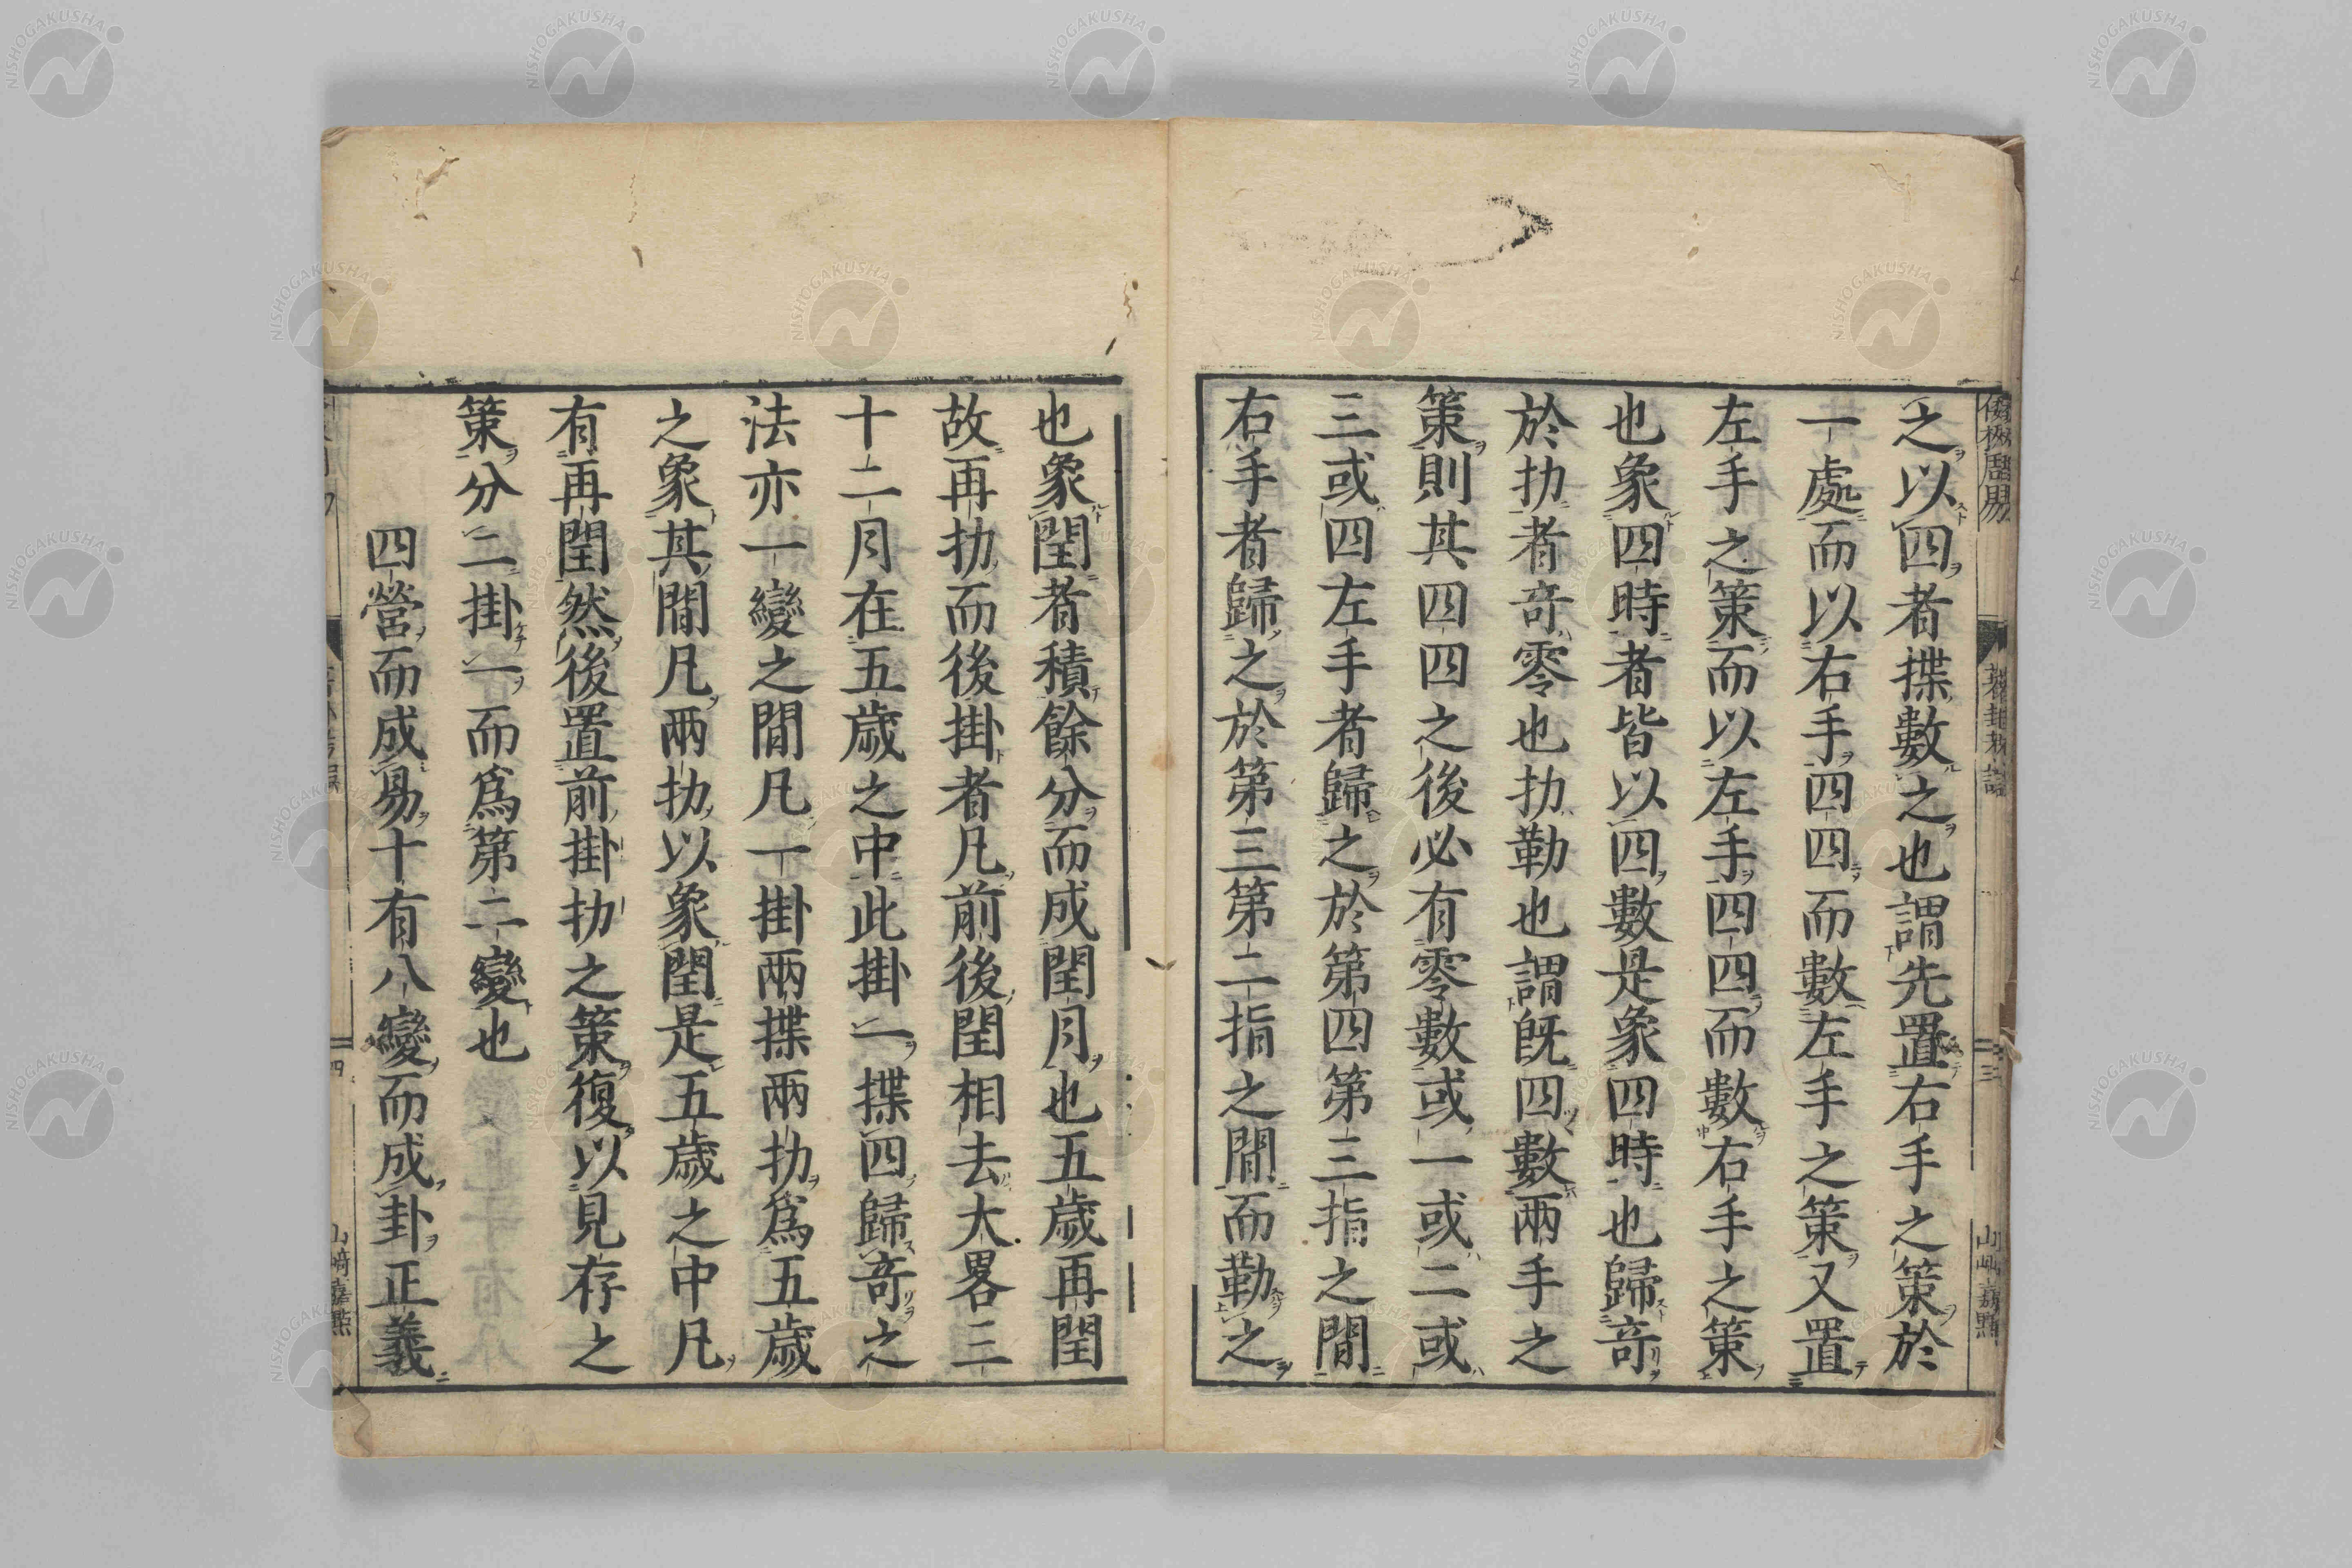 之以四者揲數之也謂先置右手之策於
一處而以右手四四而數左手之策又置
左手之策而以左手四四而數右手之策
也象四時者皆以四數是象四時也歸奇
於扐者奇零也扐勒也謂旣四數兩手之
策則其四四之後必有零數或一或二或
三或四左手者歸之於第四第三指之間
右手者歸之於第三第二指之間而勒之
也象閏者積餘分而成閏月也五歲再閏
故再扐而後掛者凡前後閏相去大畧三
十二月在五歲之中此掛一揲四歸奇之
法亦一變之間凡一掛兩揲兩扐爲五歲
之象其間凡兩扐以象閏是五歲之中凡
有再閏然後置前掛扐之策復以見存之
策分二掛一而爲第二變也
四營而成易十有八變而成卦正義
山﨑嘉點
四
NISHOGAKUSHA